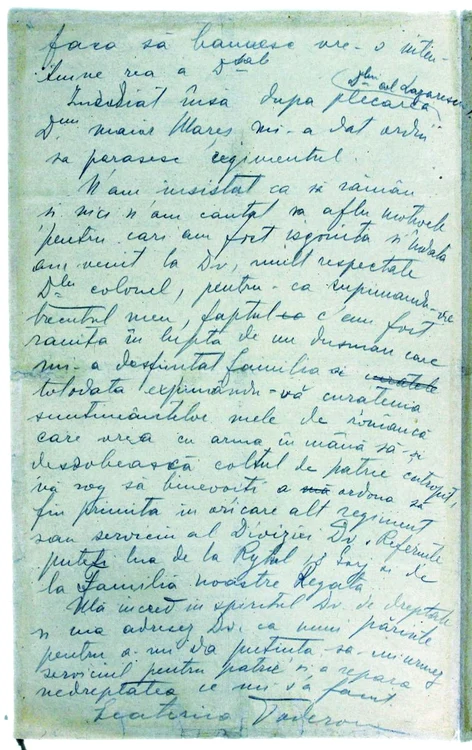 faca să banuesc vre-o inten-
tiune rea a Dsale
Imediat insa dupa plecarea Dlui col Lazarescu
Dnu maior Mares mi-a dat ordin
sa parasesc regimentul.
N'am insistat ca să rămân
si nici n'am cautat sa aflu motivele
pentru cari am fost isgonita si indata
am venit la Dv, mult respectate
Dle colonel, pentru-ca supunandu-vă
trecutul meu, faptul ca c'am fost
ranita în lupta de un dusman care
mi-a desfiintat familia si curatele
totodata exprimându-vă curatenia
sentimentelor mele de româncă
care vrea cu arma în mână să-si
desrobească coltul de patrie cotropit,
vă rog să binevoiti a mă ordona să
fiu primita in oricare alt regiment
sau serviciu al Diviziei Dv. Referinte
puteți lua de la Rgtul 18 Gorj si de
la Familia noastre Regata
Mă incred in spiritul Dv. de dreptate
si ma adresez Dv. ca unui parinte
pentru a-mi da putinta sa-mi urmez
serviciul pentru patrie si a repara
nedreptatea ce mi s'a facut.
Ecaterina Toderoiu